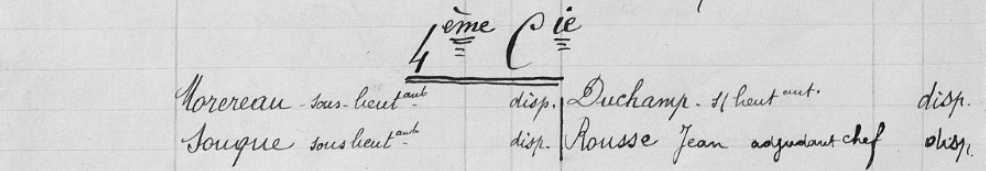 4ème Cie
Morereau - sous-lieutant disp. Duchamp - s/lieutant. disp.
Souque sous lieutant disp. Rousse Jean adjudant chef disp.